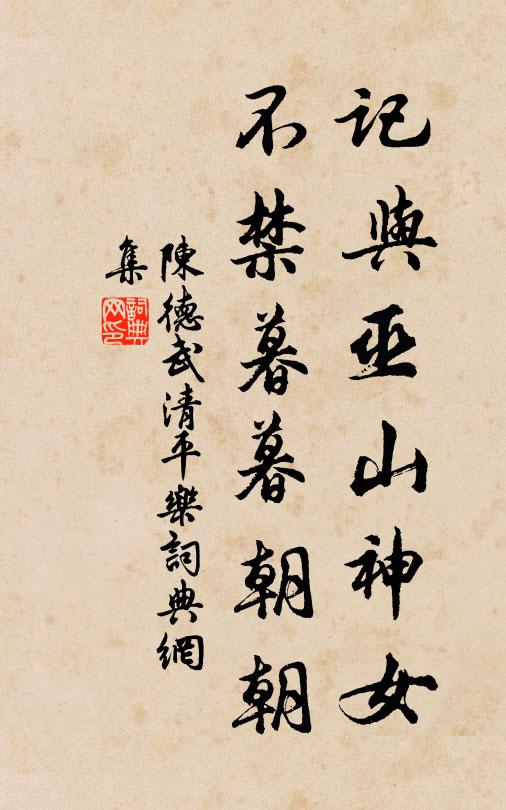 记與巫山神女
不禁暮暮朝朝
陳德武清平樂詞典網
集
詞典网印